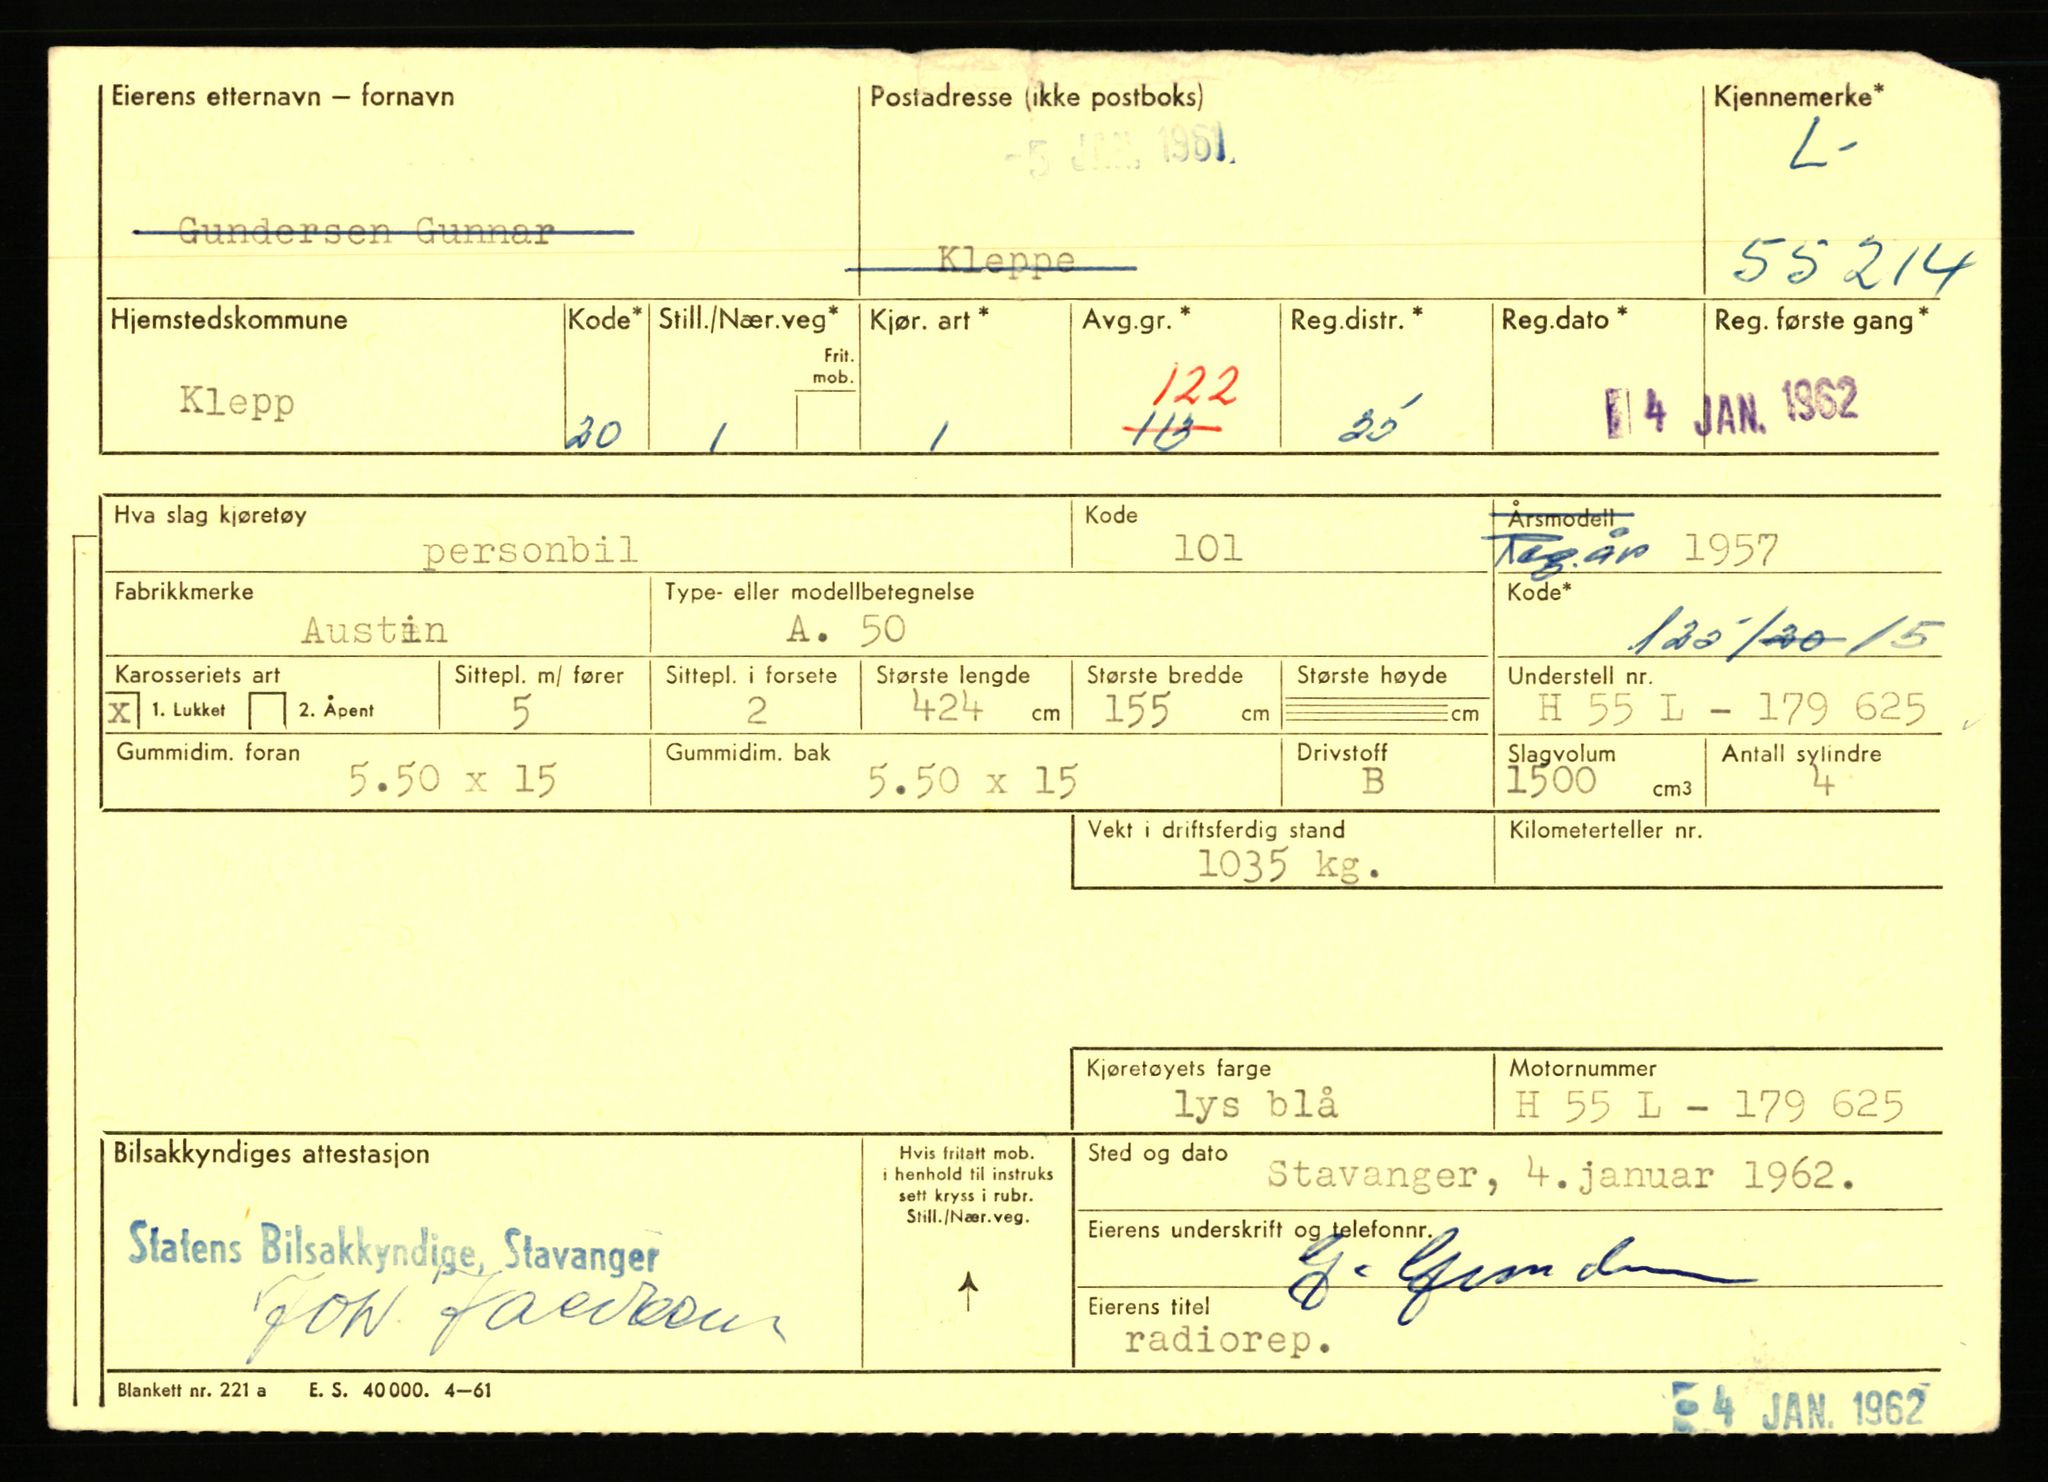 Eierens etternavn – fornavn
Postadresse (ikke postboks)
Kjennemerke*
-5 JAN. 1961.
L-
Gundersen Gunnar
Kleppe
55214
Hjemstedskommune
Kode*
Still./Nær.veg*
Kjør. art *
Avg.gr. *
Reg.distr. *
Reg.dato *
Reg. første gang*
Frit.
mob.
Klepp
20
1
1
122
113
25
4 JAN. 1962
Hva slag kjøretøy
personbil
Kode
101
Årsmodell
Reg.år 1957
Fabrikkmerke
Austin
Type- eller modellbetegnelse
A. 50
Kode*
125/20 15
Karosseriets art
X 1. Lukket
2. Åpent
Sittepl. m/ fører
5
Sittepl. i forsete
2
Største lengde
424 cm
Største bredde
155 cm
Største høyde
cm
Understell nr.
H 55 L - 179 625
Gummidim. foran
5.50 x 15
Gummidim. bak
5.50 x 15
Drivstoff
B
Slagvolum
1500 cm3
Antall sylindre
4
Vekt i driftsferdig stand
1035 kg.
Kilometerteller nr.
Kjøretøyets farge
lys blå
Motornummer
H 55 L - 179 625
Bilsakkyndiges attestasjon
Statens Bilsakkyndige, Stavanger
Hvis fritatt mob.
i henhold til instruks
sett kryss i rubr.
Still./Nær.veg.
Sted og dato
Stavanger, 4.januar 1962.
Eierens underskrift og telefonnr.
Eierens titel
radiorep.
Blankett nr. 221 a E. S. 40000. 4–61
4 JAN. 1962